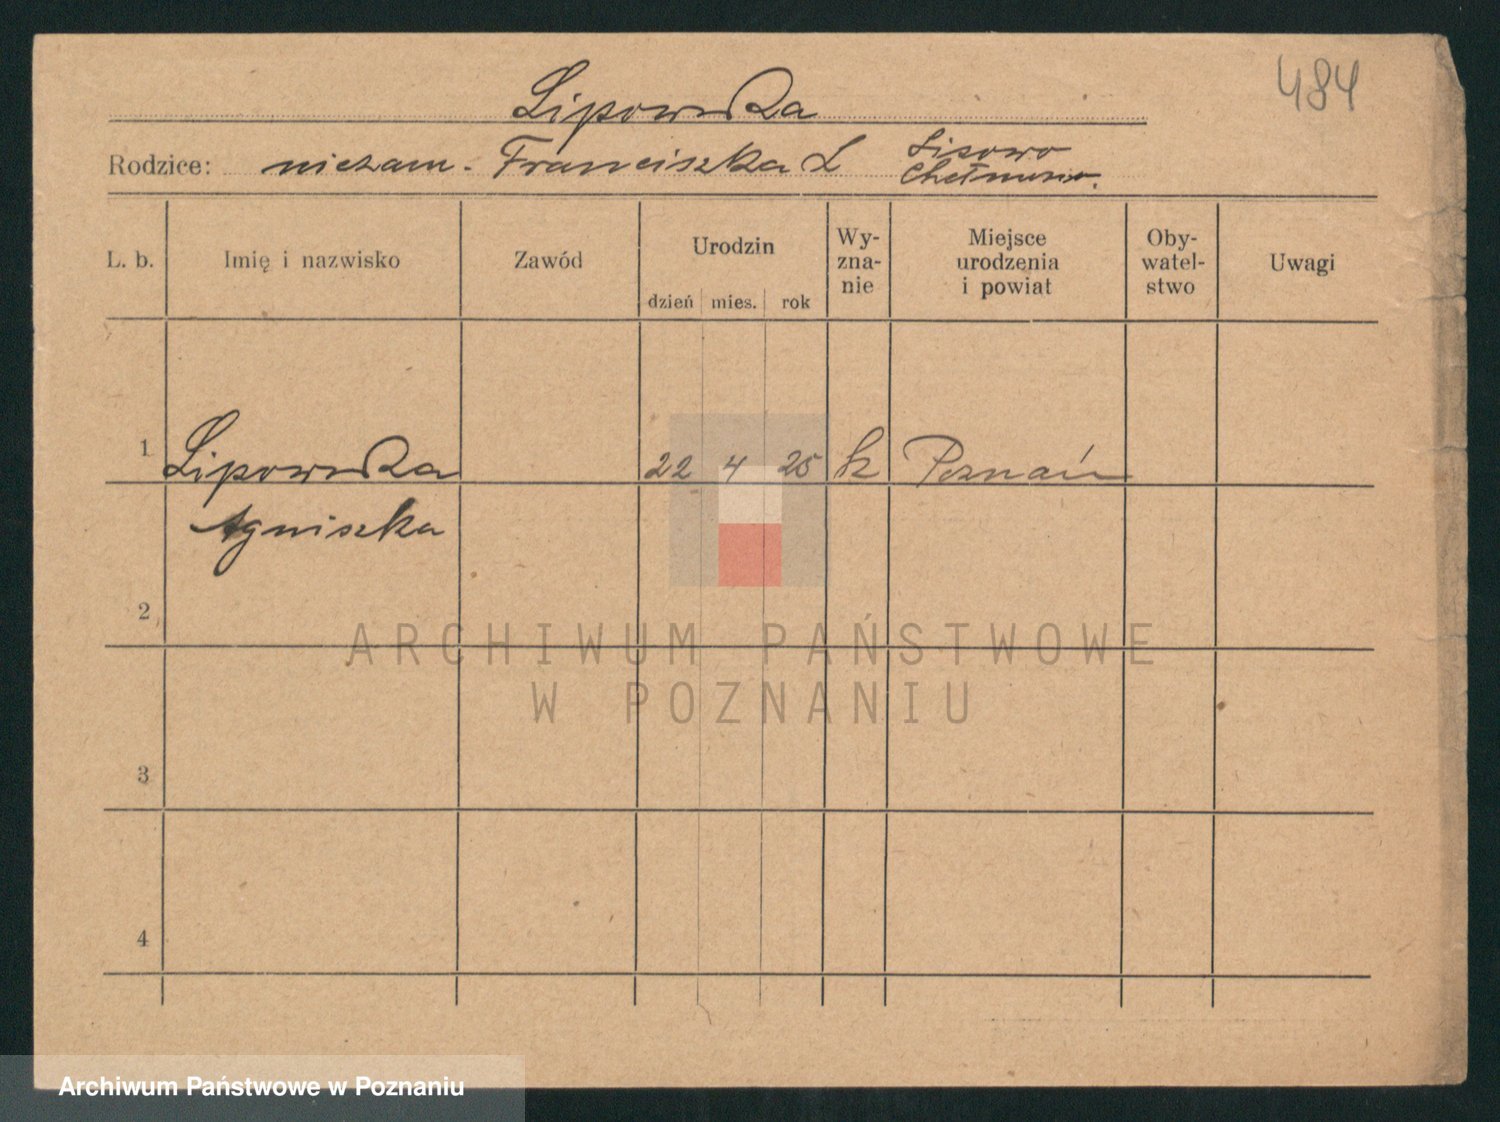 484
Lipowska
Rodzice: niezam. Franciszka L Lisowo
Chełmno.
L. b. Imię i nazwisko Zawód Urodzin dzień mies. rok Wy-
zna-
nie Miejsce
urodzenia
i powiat Oby-
watel-
stwo Uwagi
1 Lipowska 22 4 25 k Poznań
Agniszka
2
3
4
ARCHIWUM PAŃSTWOWE
W POZNANIU
Archiwum Państwowe w Poznaniu